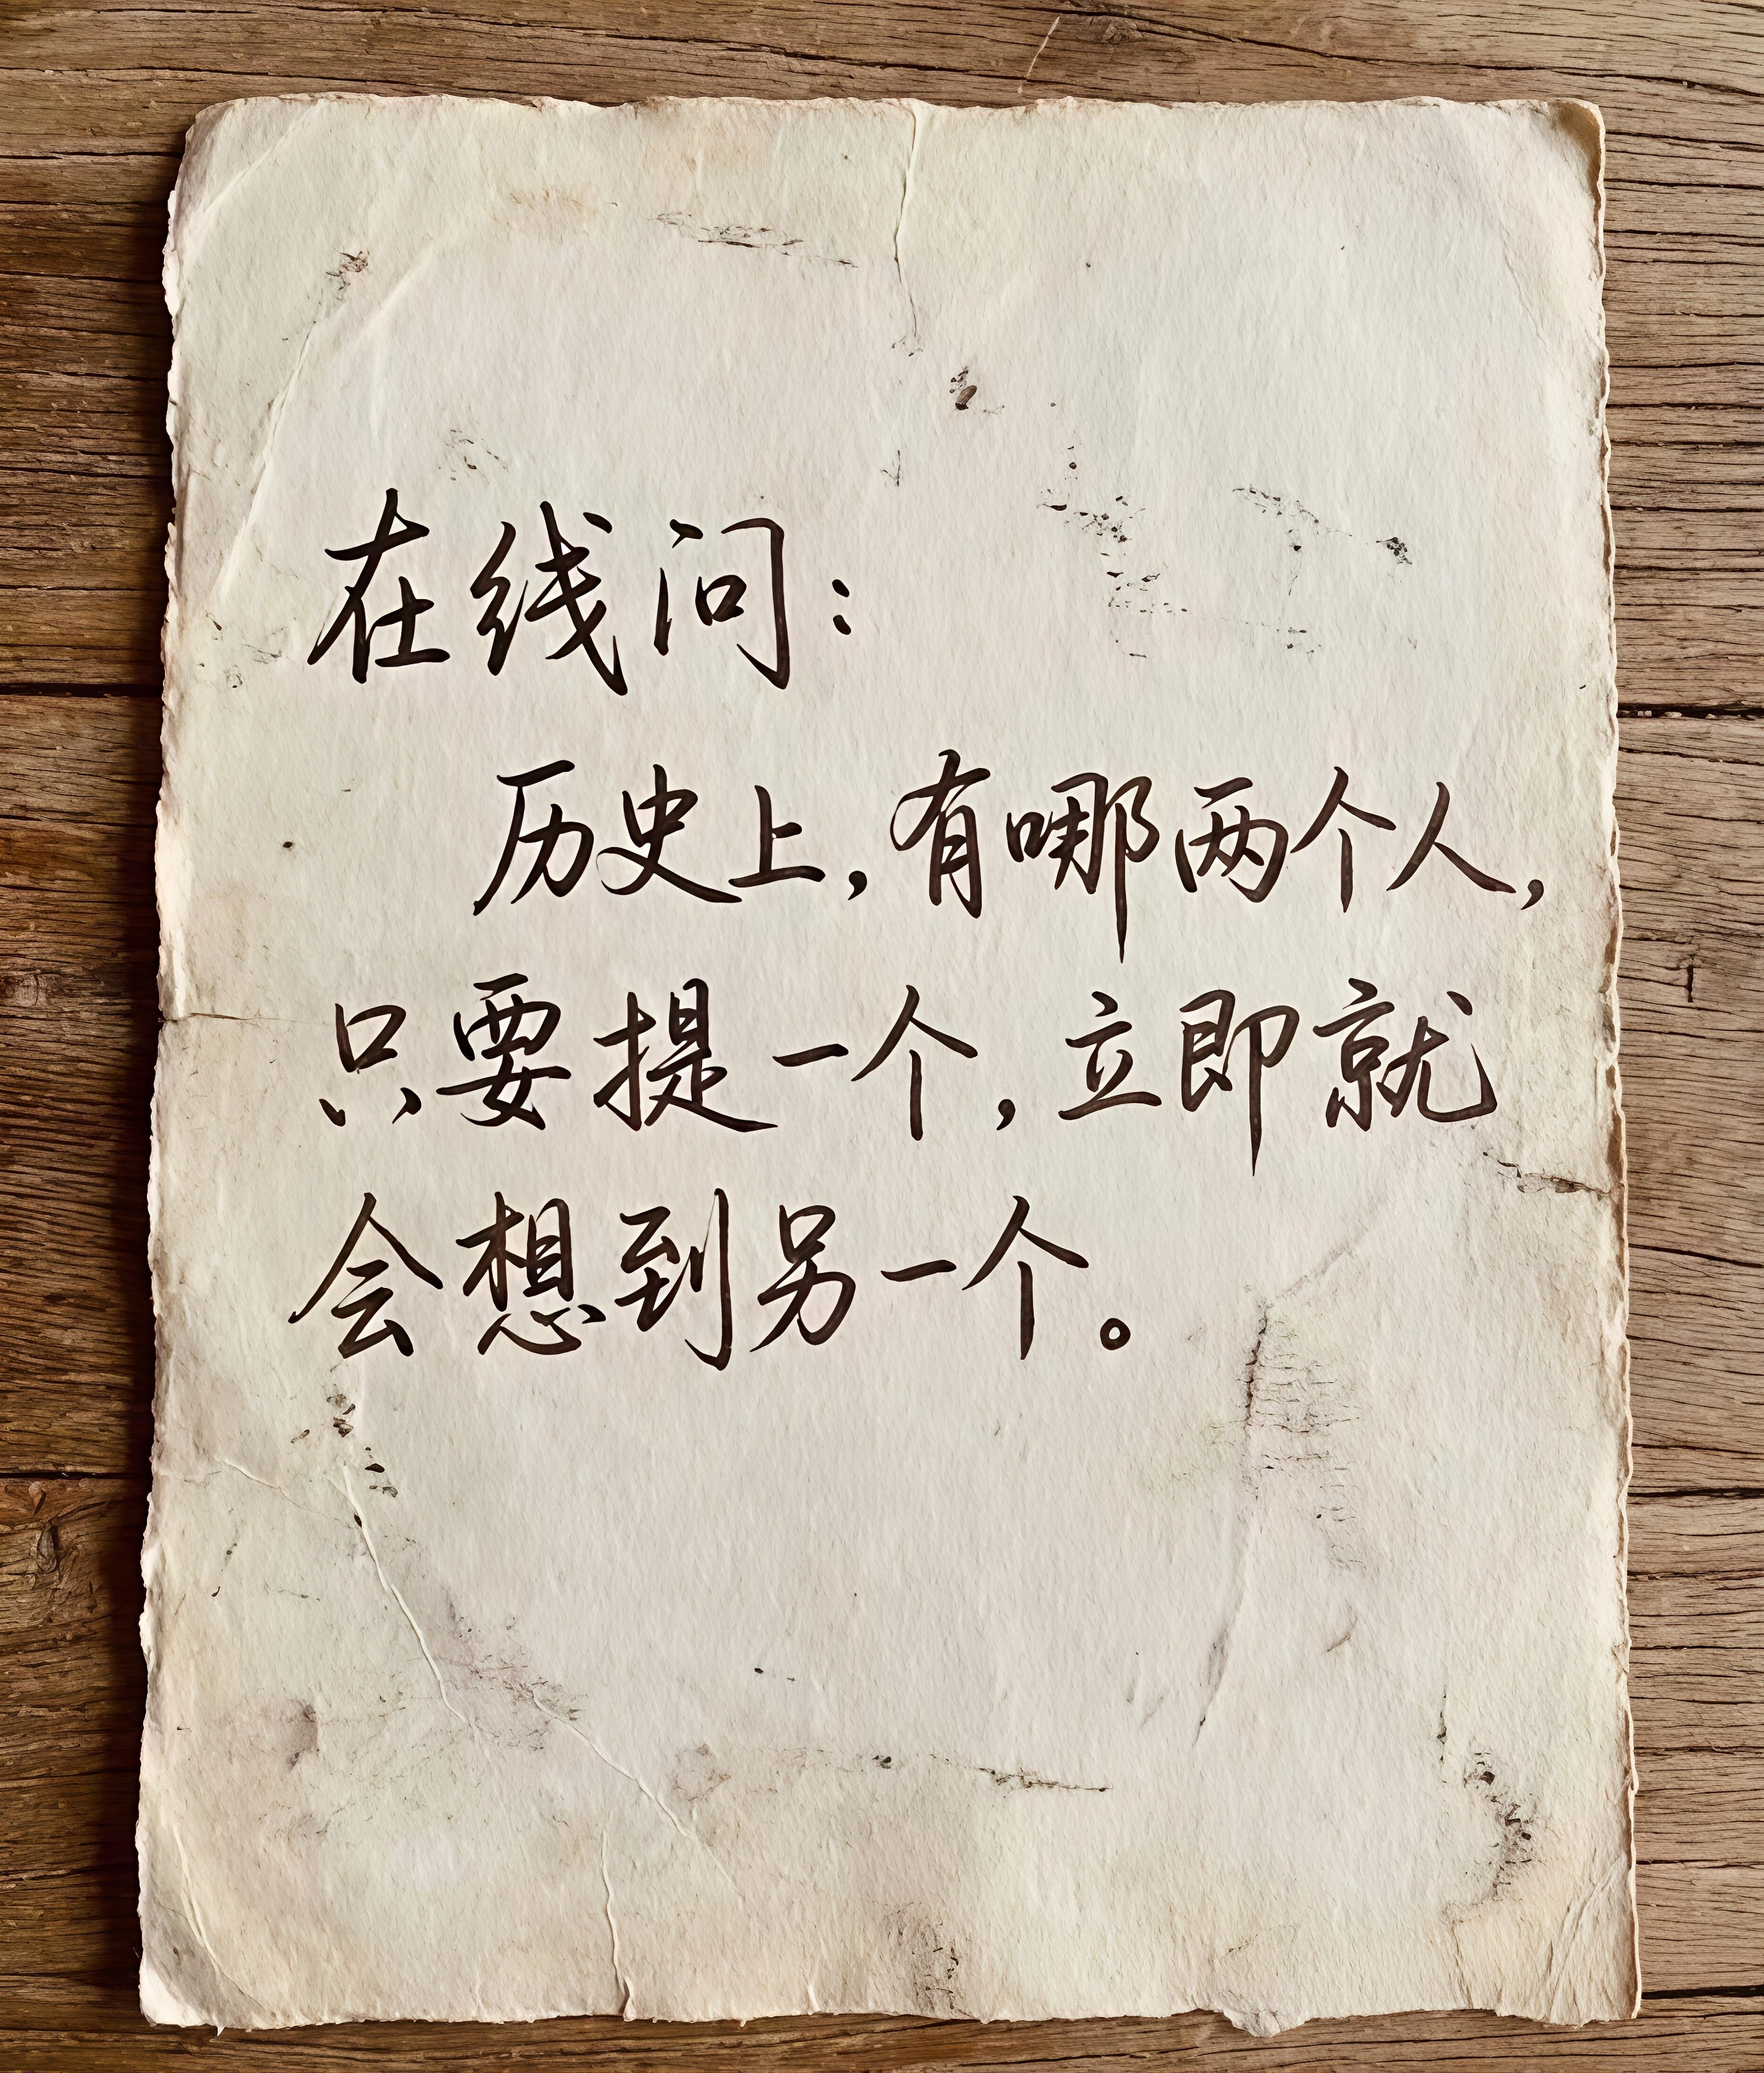 在线问：
历史上，有哪两个人，
只要提一个，立即就
会想到另一个。